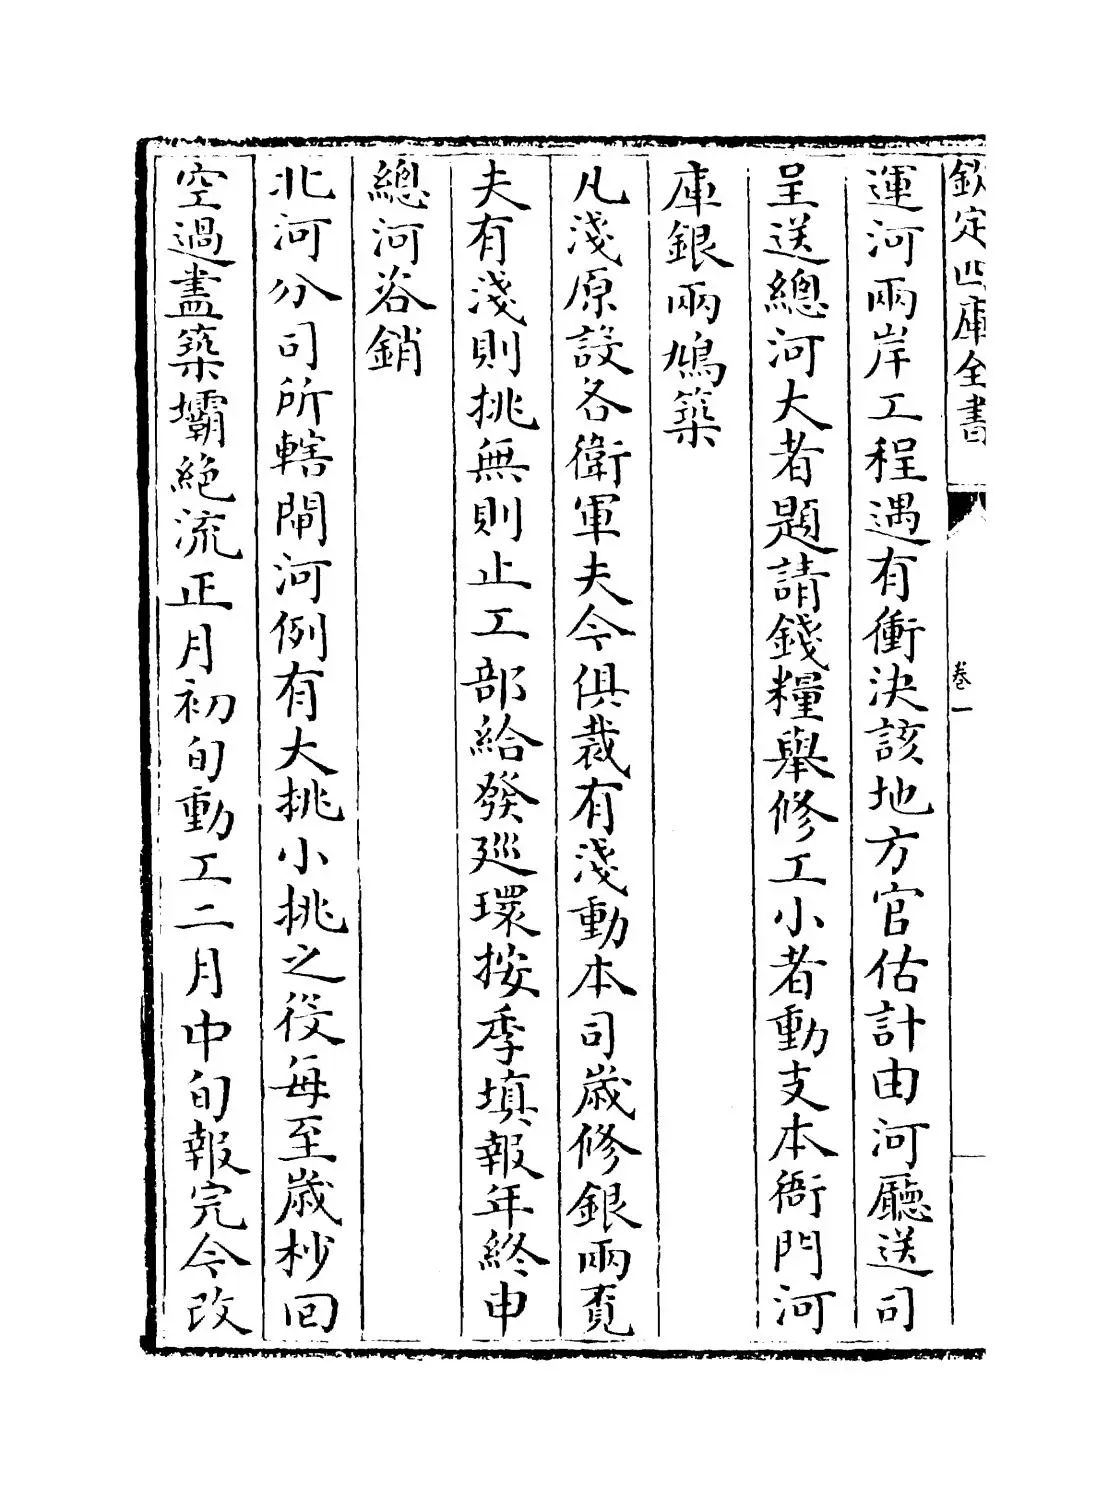 欽定四庫全書
卷一
運河兩岸工程遇有衝決該地方官估計由河廳送司
呈送總河大者題請錢糧舉修工小者動支本衙門河
庫銀兩鳩築
凡淺原設各衛軍夫今俱裁有淺動本司歲修銀兩覔
夫有淺則挑無則止工部給發廵環按季填報年終申
總河咨銷
北河分司所轄閘河例有大挑小挑之役每至歲杪回
空過盡築壩絶流正月初旬動工二月中旬報完今改